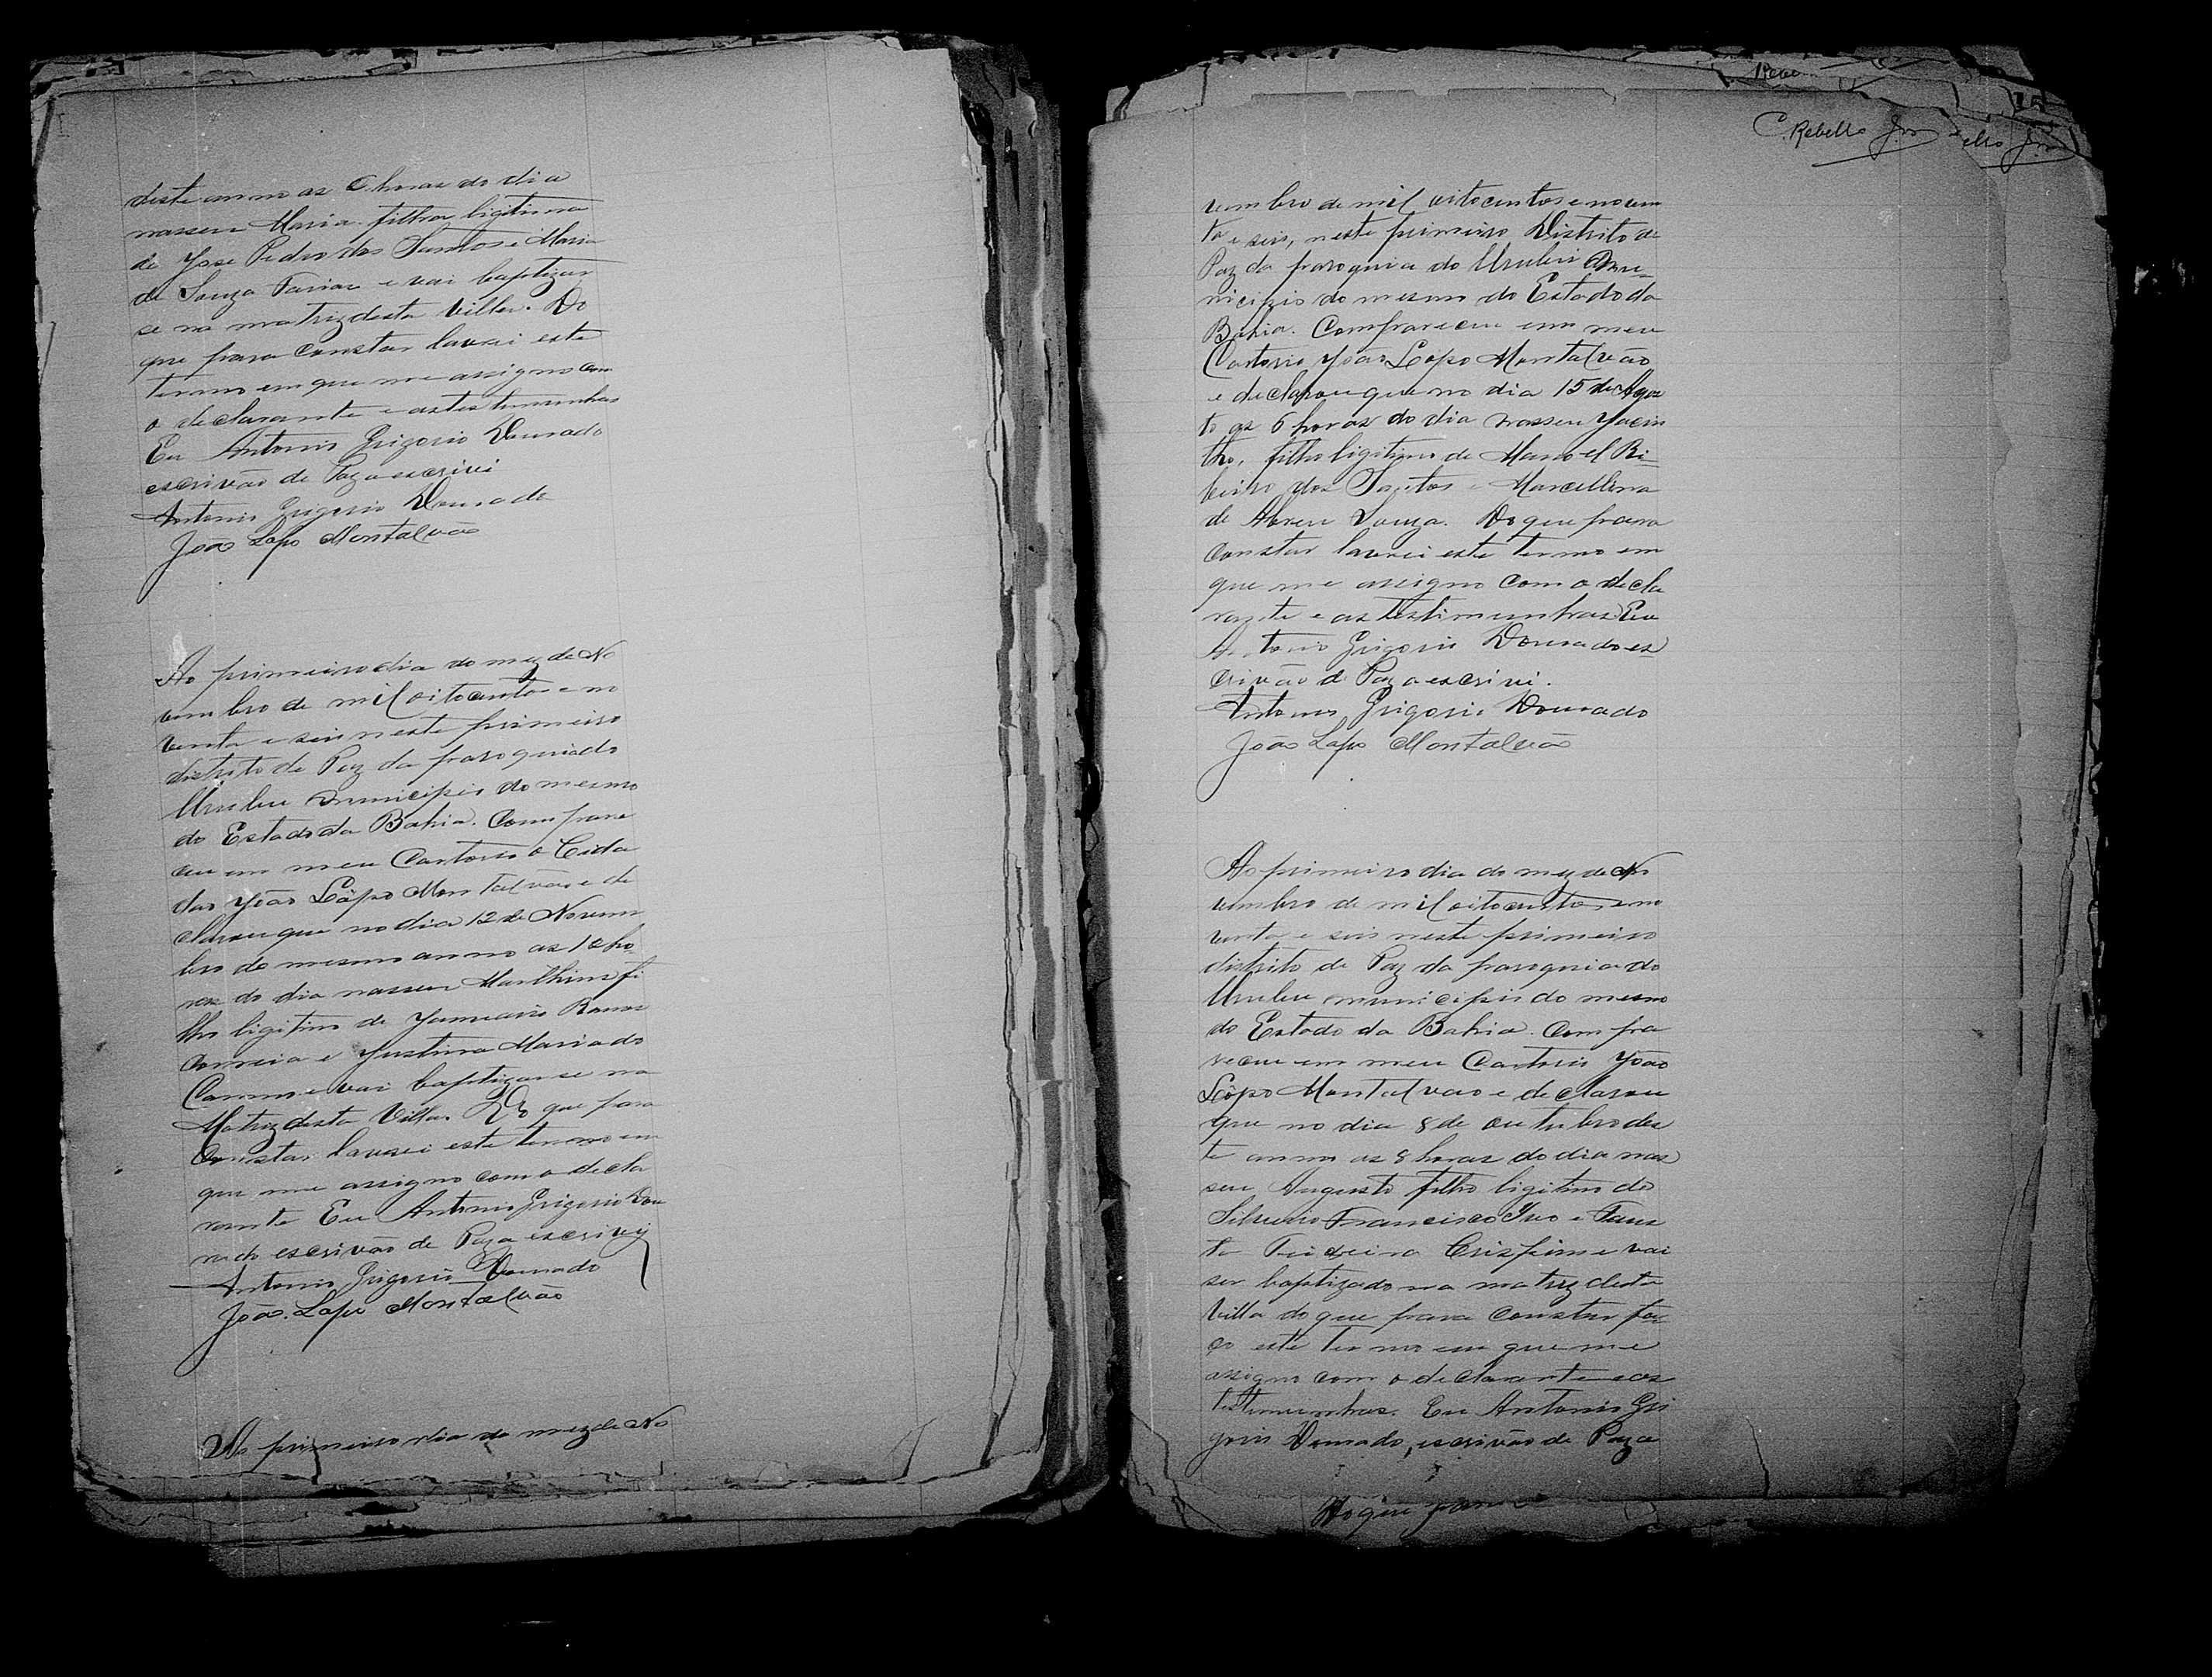 deste anno as 6 horas do dia
nasceu Maria filha ligitima
de Jose Pedro dos Santos e Maria
de Souza Farias e vai baptizar
se na matriz desta Villa. Do
que para constar lavrei este
termo em que me assigno com
o declarante e as testimunhas
Eu Antonio Grigorio Dourado
escrivão de Paz a escrivi
Antonio Grigorio Dourado
João Lopo Montalvão
Ao primeiro dia do mez de No
vembro de mil oitocentos e no
venta e seis neste primeiro
distrito de Paz da paroquia do
Urubu municipio do mesmo
do Estado da Bahia. Compare
ceu em meu Cartorio o Cida
dão João Lôpo Montalvão e de
clarou que no dia 12 de Novem
bro do mesmo anno as 10 ho
ras do dia nasceu fi
lho ligitimo de Januario Ramos
Correia e Justina Maria do
Carmo e vai baptizar se na
Matriz desta Villa. Do que para
Constar lavrei este termo em
que me assigno com o decla
rante Eu Antonio Grigorio Dou
rado escrivão de Paz a escrivi
Antonio Grigorio Dourado
João Lopo Montalvão
Ao primeiro dia do mez de No
C. Rebello Jnr ello Jnr
vembro de mil oitocentos e noven
ta e seis, neste primeiro Distrito de
Paz da paroquia do Urubu Mu-
nicipio do mesmo do Estado da
Bahia. Compareceu em meu
Cartorio João Lopo Montalvão
e declarou que no dia 15 de Agos
to as 6 horas do dia nasseu Jacin
tho, filho ligitimo de Manoel Ri-
beiro dos Santos e Marcellina
de Abreu Souza. Do que para
constar lavrei este termo em
que me assigno com o decla
rante e as testimunhas Eu
Antonio Grigorio Dourado es
crivão de Paz a escrivi.
Antonio Grigorio Dourado
João Lopo Montalvão
Ao primeiro dia do mez de No
vembro de mil oitocentos e no
venta e seis neste primeiro
distrito de Paz da paroquia do
Urubu municipio do mesmo
do Estado da Bahia. Compa
receu em meu Cartorio João
Lôpo Montalvão e declarou
que no dia 8 de outubro des
te anno as 8 horas do dia nas
seu Augusto filho ligitimo de
Silverio Francisco Ivo e Faus
ta Crispim e vai
ser baptizado na matriz desta
Villa do que para constar fa-
ço este termo em que me
assigno com o declarante e as
testimunhas. Eu Antonio Gri
gorio Dourado, escrivão de Paz a
Do que para